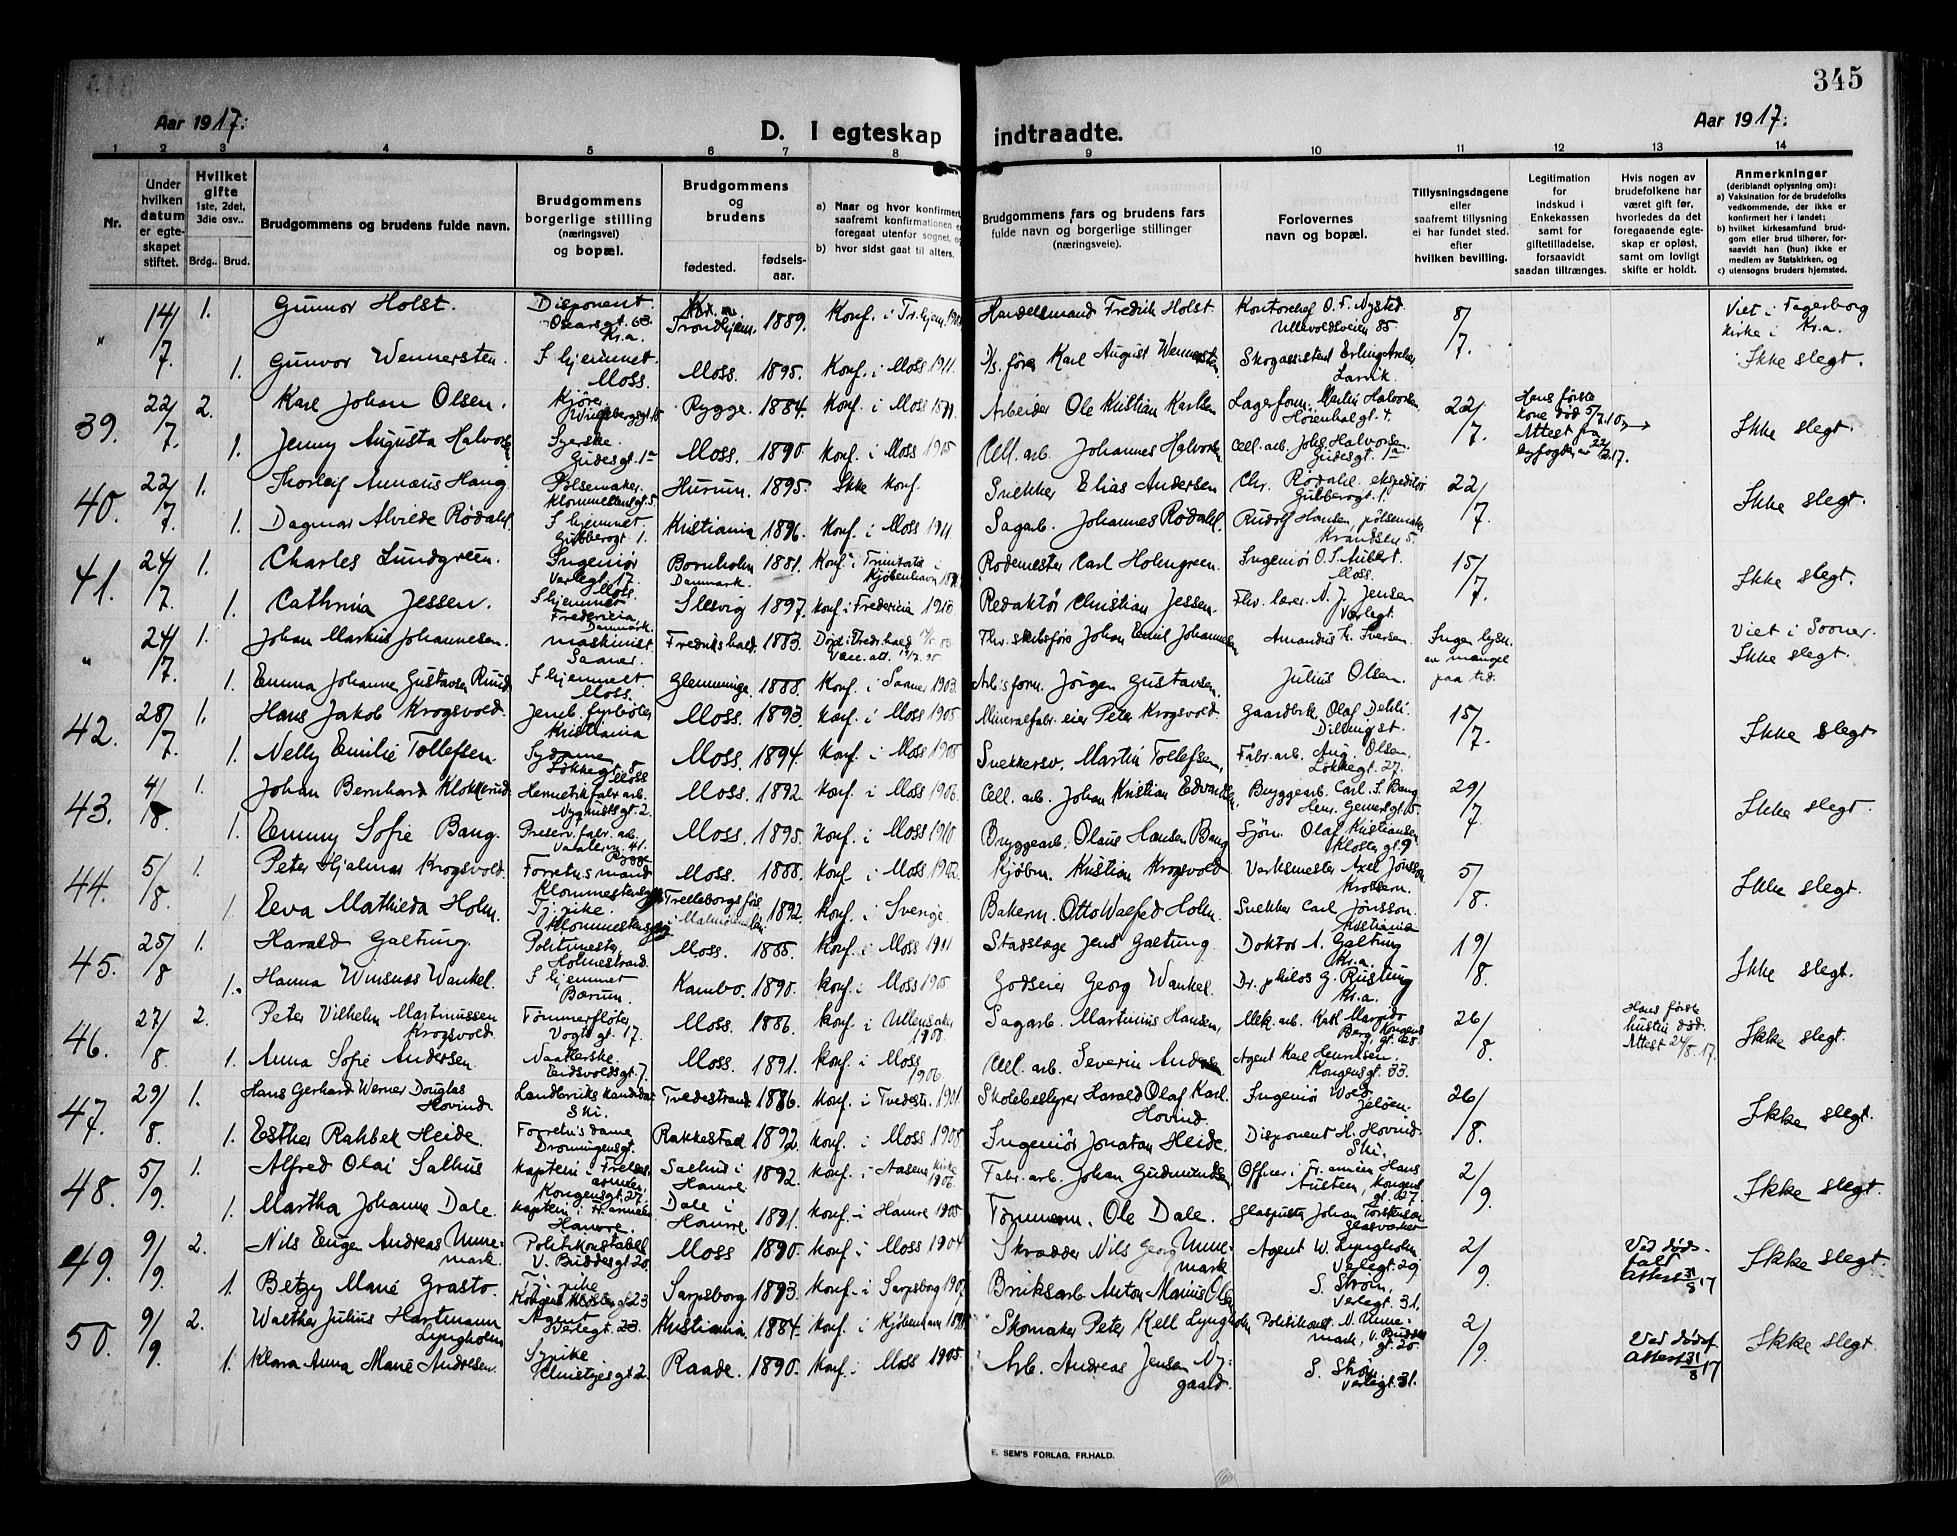 345
Aar 1917:
D. I egteskap indtraadte.
Aar 1917:
1 2 3 4 5 6 7 8 9 10 11 12 13 14
Nr.
Under hvilken datum er egteskapet stiftet.
Hvilket gifte 1ste, 2det, 3die osv..
Brdg.. Brud.
Brudgommens og brudens fulde navn.
Brudgommens borgerlige stilling (næringsvei) og bopæl.
Brudgommens og brudens
fødested.
fødselsaar.
a) Naar og hvor konfirmert,
saafremt konfirmationen
foregaat utenfor sognet,
b) hvor sidst gaat til alters.
Brudgommens fars og brudens fars fulde navn og borgerlige stillinger (næringsveie).
Forlovernes navn og bopæl.
Tillysningsdagene eller saafremt tillysning ei har fundet sted, efter hvilken bevilling.
Legitimation for indskud i Enkekassen samt for giftetilladelse, forsaavidt saadan tiltrænges.
Hvis nogen av brudefolkene har været gift før, hvorledes da det foregaaende egteskap er opløst, samt om lovligt skifte er holdt.
Anmerkninger
(deriblandt oplysning om):
a) Vaksination for de brudefolks vedkommende, der ikke er konfirmert her i landet;
b) hvilket kirkesamfund brudgom eller brud tilhører, forsaavidt han (hun) ikke er medlem av Statskirken, og
c) utensogns bruders hjemsted.
" 14/7 1. Gunnar Holst. Disponent Oscarsgt. 63. Kr.a. Trondhjem. 1889. Konf. i Tr.hjem Handelsmand Fredrik Holst. Kontorchef O. F. Nysted Ullevoldsveien 85 8/7 Viet i Fagerborg kirke i Kr.a.
1. Gunvor Wennersten. I hjemmet. Moss. Moss. 1895. Konf. i Moss 1911. Karl August Wennersten Skogassistent Larvik. Ikke slegt.
39. 22/7 2. Karl Johan Olsen. Rygge. 1884. Konf. i Moss Arbeider Ole Kristian Karlsen Lagerform. Martin Halvorsen Høienhalgt. 4. 22/7. Hans første kone død Attest fra byfogden Ikke slegt.
1. Jenny Augusta Halvorsen Syerske. Gudesgt. 1a Moss. 1890. Konf. i Moss 1905 Cell. arb. Johannes Halvorsen Cell. arb. Johs. Halvorsen. Gudesgt. 1a
40. 22/7. 1. Thorleif Annæus Haug. Pølsemaker. Hurum. 1895. Ikke konf. Snekker Elias Andersen Chr. Rødahl, ekspeditør Gubberogt. 1. 22/7. Ikke slegt.
1. Dagmar Alvilde Rødahl. I hjemmet Gubberogt 1. Kristiania 1896. Konf. i Moss 1911 Sagarb. Johannes Rødahl. Rudolf Hansen, pølsemaker
41. 24/7. 1. Charles Lundgreen. Ingeniør Varlegt. 17. Moss. Bornholm Danmark. 1881. Konf. i Trinitatis i Kjøbenhavn Rodemester Carl Holmgreen. Ingeniør O. S. Aubert. Moss. 15/7. Ikke slegt.
1. Cathrina Jessen. I hjemmet Fredericia, Danmark. Slesvig 1897. Konf. i Fredericia 1910 Redaktør Christian Jessen. Fhv. lærer. N. J. Jensen Varlegt.
" 24/7. 1. Johan Markus Johannesen. Maskinist Saaner. Fredrikshald. 1883. Fhv. skibsfører Johan Emil Johannesen Amandus K. Iversen. Ingen lysn. av mangel paa tid. Viet i Sooner. Ikke slegt.
1. Emma Johanne Gustavsen Ruud. I hjemmet. Moss. Glemminge. 1888. Konf. i Saaner 1903. Arb.sform. Jørgen Gustavsen. Julius Olsen.
42. 28/7. 1. Hans Jakob Krogsvold. Jernb. fyrbøter Kristiania Moss. 1893. Konf. i Moss 1908 Mineralfabr. eier Peter Krogsvold Gaardbrk. Olaf Dehli. Dillingst. 15/7. Ikke slegt
1. Nelly Emilie Tollefsen. Sydame Løkkegt. Moss Moss. 1894. Konf. i Moss 1908 Snekkersv. Martin Tollefsen, Fabr. arb. Aug. Olsen. Løkkegt. 27.
43. 4/8. 1. Johan Bernhard Klokkerud. Hermetikfabr. arb. Moss. 1892 Konf. i Moss 1906. Cell. arb. Johan Kristian Edvardsen, Bryggearb. Carl. S. Bang Henr. Gernersgt. 15. 29/7 Ikke slegt.
1. Emmy Sofie Bang. Preserv. fabr. arb. Vaalerv. 41. Rygge Moss. 1895. Konf. i Moss 1910. Bryggearb. Olaus Hansen Bang Sjøm. Olaf Kristiansen Klostergt. 9
44. 5/8. 1. Peter Hjalmar Krogsvold. Forretn.smand Moss. 1888. Konf. i Moss 1902. Kjøbm. Kristian Krogsvold Verksmester Axel Jönsson Krossern. 5/8. Ikke slegt.
1. Eeva Mathilda Holm. Tj.pike. Trelleborgs förs. i Malmöhus län. 1892. Konf. i Sverige. Bakerm. Otto Walfrid Holm. Snekker Carl Jönsson. Kristiania
45. 25/8 1. Harald Galtung. Politimester Holmestrand. Moss. 1885. Konf. i Moss 1901 Stadslæge Jens Galtung. Doktor A. Galtung Kr.a. 19/8. Ikke slegt.
1. Hanna Winsnes Wankel. I hjemmet Bærum. Kambo. 1890. Konf. i Moss 1905 Godseier Georg Wankel. Dr. philos G. Rustung Kr.a.
46. 27/8 2. Peter Vilhelm Martinussen Krogsvold. Tømmerfløter Vogtsgt. 17. Moss. 1886. Konf. i Ullensaker Sagarb. Martinius Hansen, Mek. arb. Karl Berg, Kongensgt. 26/8. Hans første hustru død. Attest 24/8. 17. Ikke slegt.
1. Anna Sofie Andersen. Vaskerske. Eidsvoldsgt. 7. Moss. 1891. Konf. i Moss 1906. Cell. arb. Severin Andersen Agent Karl Henriksen. Kongensgt. 33.
47. 29/8. 1. Hans Gerhard Werner Douglas Hovind. Landbrukskandidat Ski. Tvedestrand. 1886. Konf. i Tvedestr. 1901. Skolebestyrer Harald Olaf Karl Hovind. Ingeniør Wold. Jeløen. 26/8. Ikke slegt.
1. Esther Rahbek Heide. Forretn.sdame Dronningensgt. Rakkestad 1892. Konf. i Moss 1908 Ingeniør Jonatan Heide. Disponent H. Hovind. Ski.
48. 5/9. 1. Alfred Olai Salhus Kaptein i Frelsesarméen. Kongensgt. 27. Salhus i Hamre 1892. Konf. i Aasene kirke 1906. Fabr. arb. Johan Gudmundsen Officer i Fr. arméen Hans Austeen, Kongensgt. 27. 2/9. Ikke slegt.
1. Martha Johanne Dale. Kaptein i Fr. arméen Hamre. Dale i Hamre 1891. Konf. i Hamre 1905 Tømmerm. Ole Dale. Glaspuster Johan Torstensen Glasverket
49. 9/9. 2. Nils Eugen Andreas Unnemark. Politikonstabel V. Buddesgt 20. Moss 1890. Konf. i Moss 1904 Skrædder Nils Georg Unnemark Agent W. Lyngholm Verlegt. 29. 2/9. Ved dødsfald Attest 31/8 17 Ikke slegt.
1. Betzy Marie Grasto. Tj.pike Sarpsborg 1893. Konf. i Sarpsborg Bruksarb Anton Marius Olsen S. Strøm, Verlegt. 31.
50. 9/9. 2. Walther Julius Hartmann Lyngholm Agent Verlegt. 23. Kristiania. 1884. Konf. i Kjøbenhavn Skomaker Peter Kell Lyngholm Politikonst. N. Unnemark, V. Buddesgt. 20. 2/9. Ved dødsf. Attest 31/8 17 Ikke slegt
1. Klara Anna Marie Andresen. Sypike Raade. 1890. Konf. i Moss 1905. Arb. Andreas Jensen Nygaard. S. Strøm Verlegt. 31.
E. SEM'S FORLAG, FR.HALD.